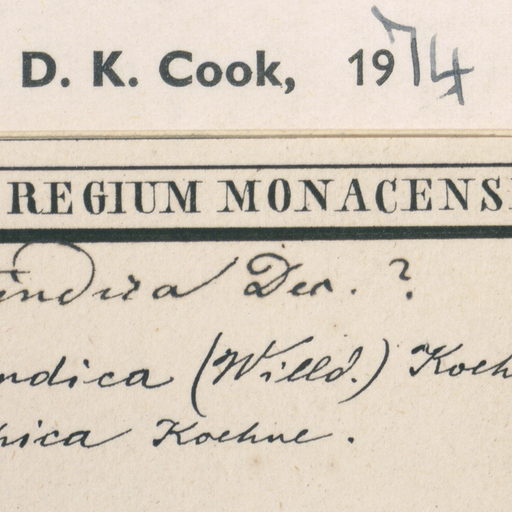 D. K. Cook, 1974
REGIUM MONACENS
indica Dec. ?
ndica (Willd.) Koeh
hica Koehne.